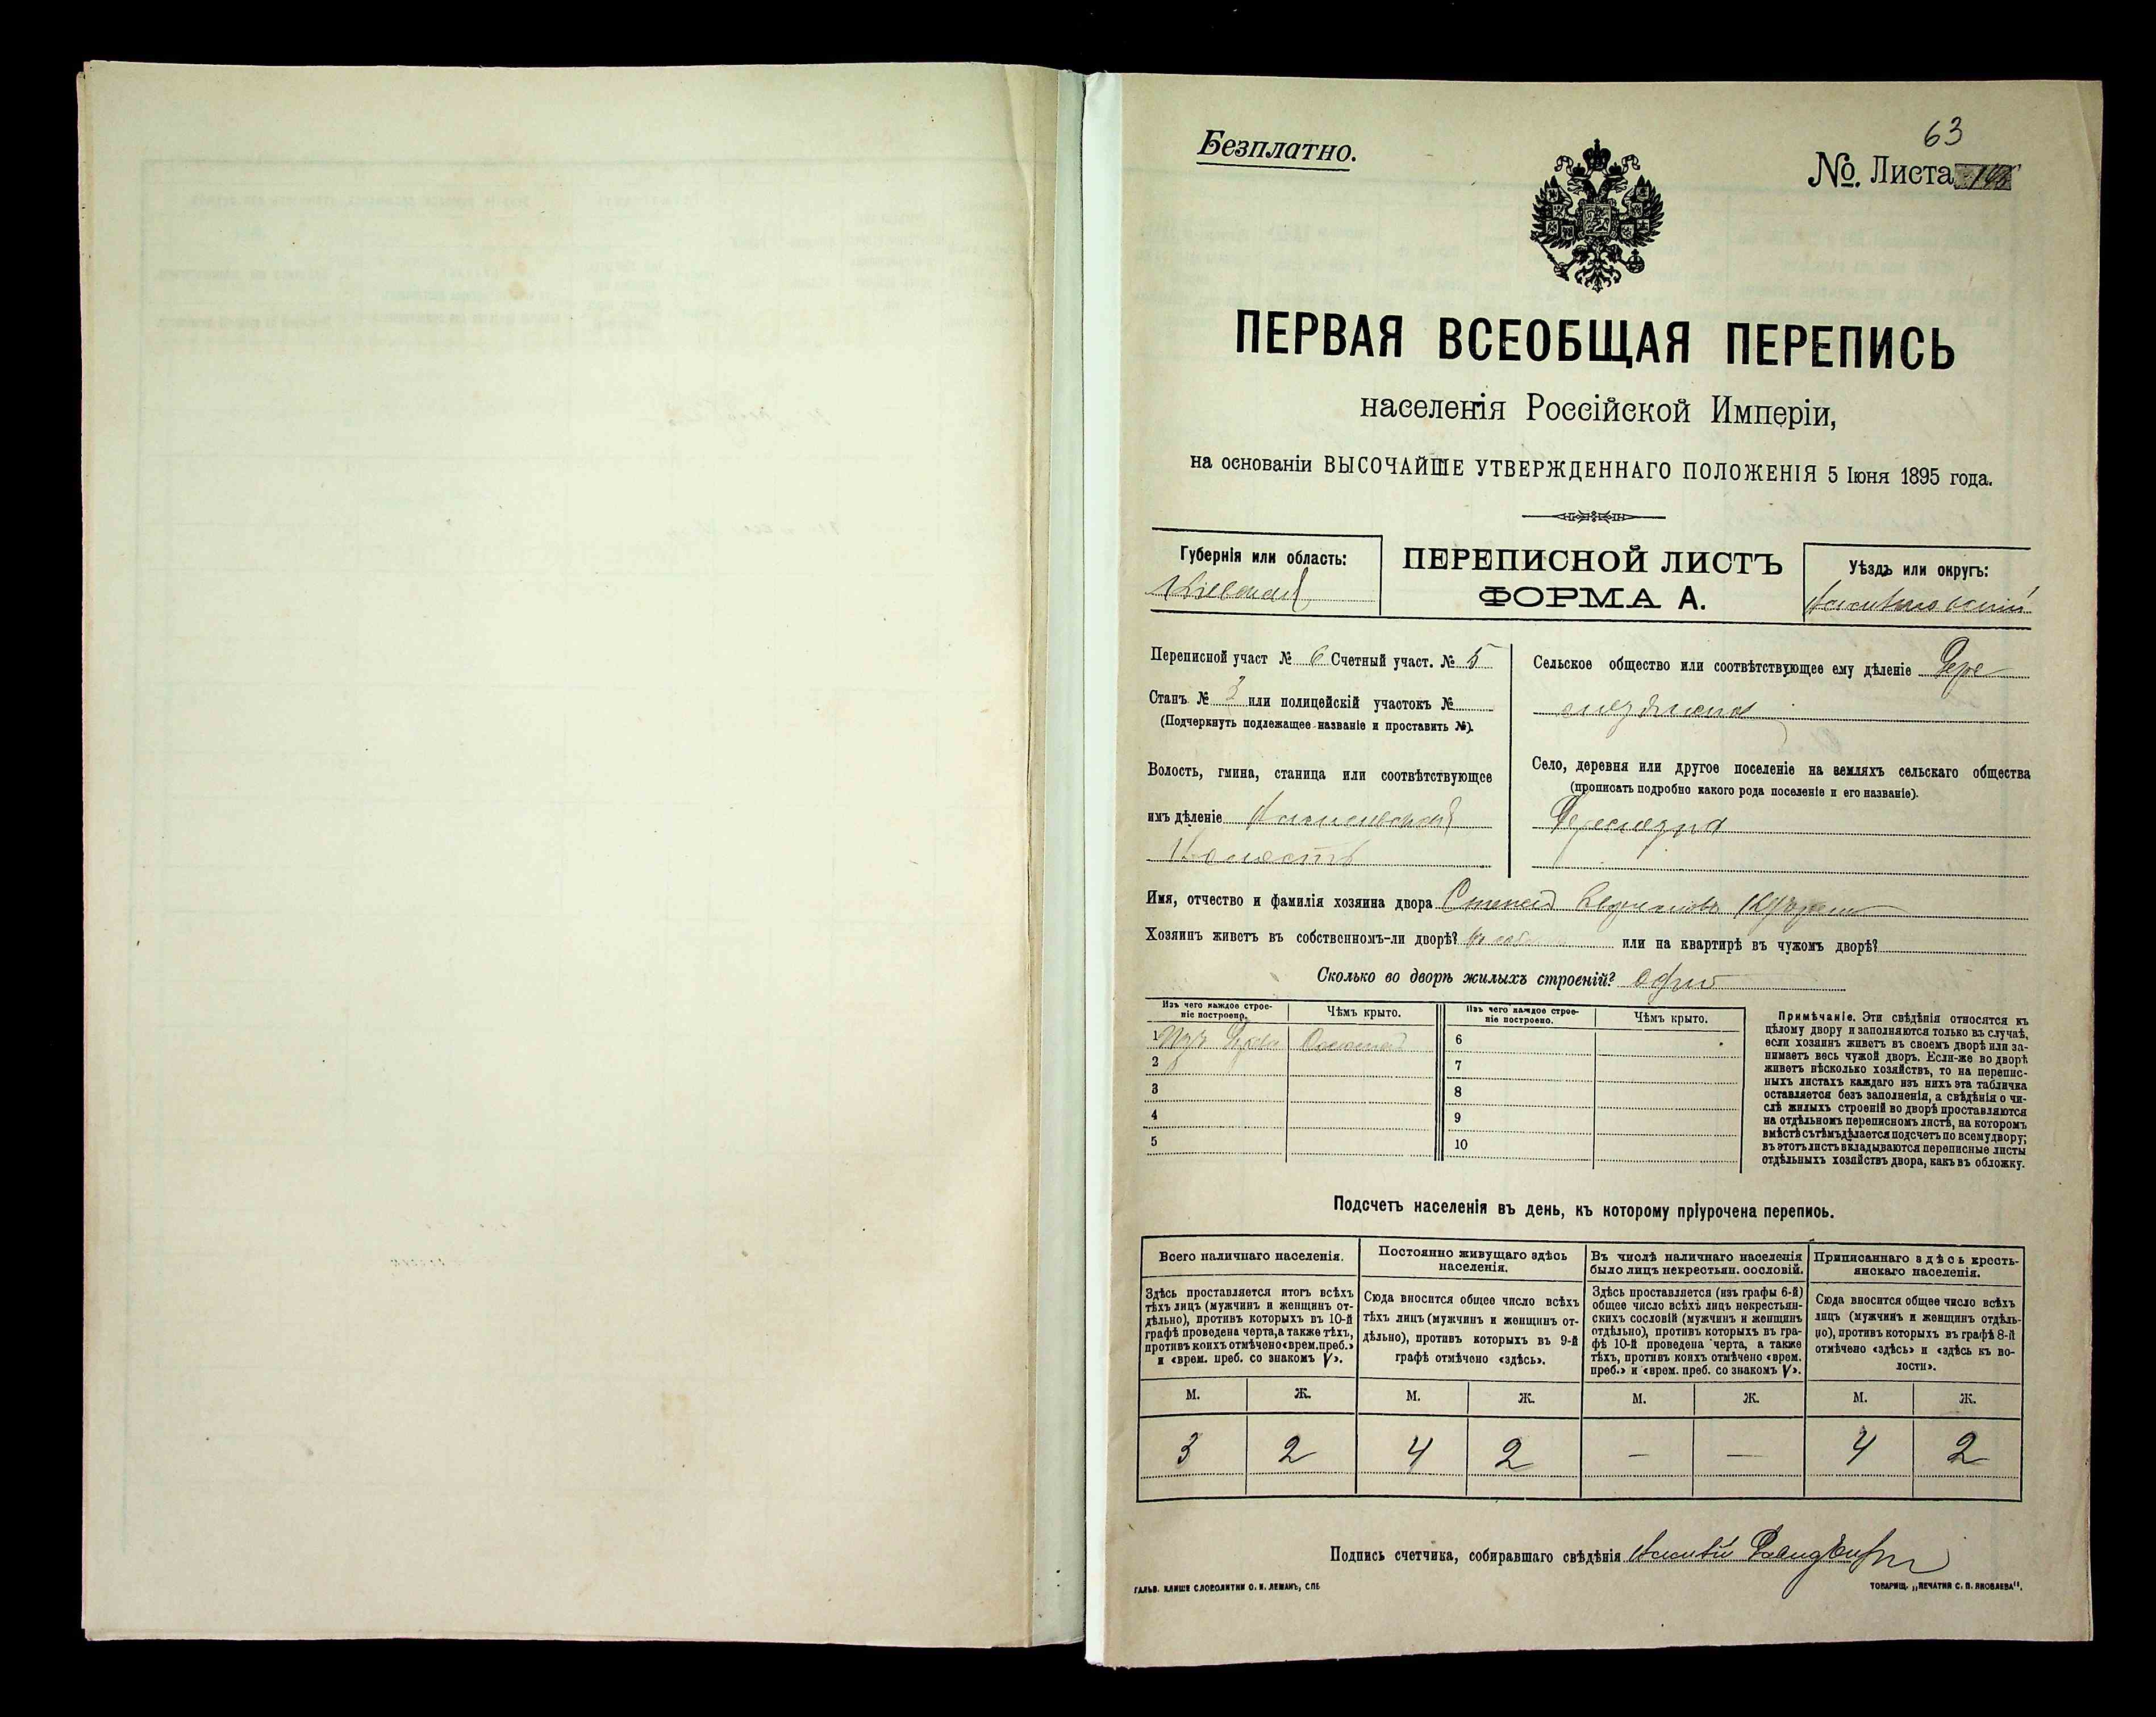 63
Безплатно.
№. Листа
ПЕРВАЯ ВСЕОБЩАЯ ПЕРЕПИСЬ
населенія Россійской Имперіи,
на основаніи ВЫСОЧАЙШЕ УТВЕРЖДЕННАГО ПОЛОЖЕНІЯ 5 Іюня 1895 года.
Губернія или область:
ПЕРЕПИСНОЙ ЛИСТЪ
ФОРМА А.
Уѣздъ или округъ:
Переписной участ № 6 Счетный участ. № 5
Станъ № 3 или полицейскій участокъ №
(Подчеркнуть подлежащее названіе и проставить №).
Волость, гмина, станица или соотвѣтствующее
имъ дѣленіе
Волость
Сельское общество или соотвѣтствующее ему дѣленіе
Село, деревня или другое поселеніе на земляхъ сельскаго общества
(прописать подробно какого рода поселеніе и его названіе).
Имя, отчество и фамилія хозяина двора Степанъ
Хозяинъ живетъ въ собственномъ-ли дворѣ? или на квартирѣ въ чужомъ дворѣ?
Сколько во дворѣ жилыхъ строеній? один
Изъ чего каждое строе-
ніе построено.
Чѣмъ крыто.
Изъ чего каждое строе-
ніе построено.
Чѣмъ крыто.
1 Изъ дерева Соломой
2
3
4
5
6
7
8
9
10
Примѣчаніе. Эти свѣдѣнія относятся къ
цѣлому двору и заполняются только въ случаѣ,
если хозяинъ живетъ въ своемъ дворѣ или за-
нимаетъ весь чужой дворъ. Если-же во дворѣ
живетъ нѣсколько хозяйствъ, то на перепис-
ныхъ листахъ каждаго изъ нихъ эта табличка
оставляется безъ заполненія, а свѣдѣнія о чи-
слѣ жилыхъ строеній во дворѣ проставляются
на отдѣльномъ переписномъ листѣ, на которомъ
вмѣстѣ съ тѣмъ дѣлается подсчетъ по всему двору;
въ этотъ листъ вкладываются переписные листы
отдѣльныхъ хозяйствъ двора, какъ въ обложку.
Подсчетъ населенія въ день, къ которому пріурочена перепись.
Всего наличнаго населенія.
Здѣсь проставляется итогъ всѣхъ
тѣхъ лицъ (мужчинъ и женщинъ от-
дѣльно), противъ которыхъ въ 10-й
графѣ проведена черта, а также тѣхъ,
противъ коихъ отмѣчено «врем. преб.»
и «врем. преб. со знакомъ V».
Постоянно живущаго здѣсь
населенія.
Сюда вносится общее число всѣхъ
тѣхъ лицъ (мужчинъ и женщинъ от-
дѣльно), противъ которыхъ въ 9-й
графѣ отмѣчено «здѣсь».
Въ числѣ наличнаго населенія
было лицъ некрестьян. сословій.
Здѣсь проставляется (изъ графы 6-й)
общее число всѣхъ лицъ некрестьян-
скихъ сословій (мужчинъ и женщинъ
отдѣльно), противъ которыхъ въ гра-
фѣ 10-й проведена черта, а также
тѣхъ, противъ коихъ отмѣчено «врем.
преб.» и «врем. преб. со знакомъ V».
Приписаннаго здѣсь кресть-
янскаго населенія.
Сюда вносится общее число всѣхъ
лицъ (мужчинъ и женщинъ отдѣль-
но), противъ которыхъ въ графѣ 8-й
отмѣчено «здѣсь» и «здѣсь къ во-
лости».
М. Ж. М. Ж. М. Ж. М. Ж.
3 2 4 2 — — 4 2
Подпись счетчика, собиравшаго свѣдѣнія
ГАЛЬВ. КЛИШЕ СЛОВОЛИТНИ О. И. ЛЕМАНЪ, СПБ
ТОВАРИЩ. „ПЕЧАТНЯ С. П. ЯКОВЛЕВА".